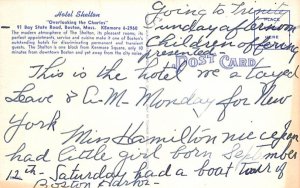 Hotel Shelton
"Overlooking the Charles"
91 Bay State Road, Boston, Mass. KEnmore 6-2960
The modern atmosphere of The Shelton, its pleasant rooms, its
perfect appointments, service and cuisine make it one of Boston's
outstanding hotels for discriminating permanent and transient
guests. The Shelton is one block from Kenmore Square, only 10
minutes from downtown Boston and yet away from the city noise.
Going to Trinity
Sunday afternoon
Children offering
presented
PLACE
POST CARD
This is the hotel we stayed
Leave & C-M- Monday for New
York
Miss Hamilton niece Jean
had little girl born September
12th- Saturday had a boat tour of
Boston Harbor-